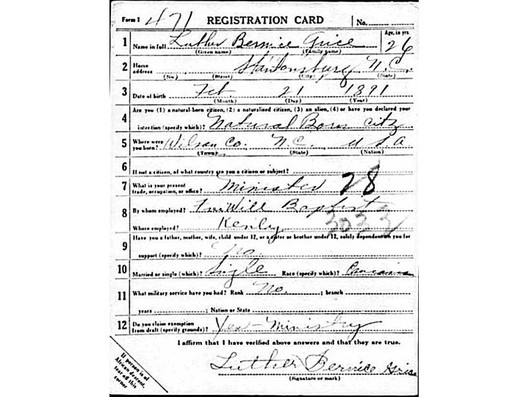 Form 1 471 REGISTRATION CARD No.
1 Name in full Luther Bernice Grice Age, in yrs. 26
(Given name) (Family name)
2 Home address Stantonsburg N.C.
(No.) (Street) (City) (State)
3 Date of birth Feb. 21 1891
(Month) (Day) (Year)
4 Are you (1) a natural-born citizen, (2) a naturalized citizen, (3) an alien, (4) or have you declared your
intention (specify which)? Natural Born Citz
5 Where were you born? Wilson Co. N.C. U S A
(Town) (State) (Nation)
6 If not a citizen, of what country are you a citizen or subject?
7 What is your present trade, occupation, or office? Minister 28
8 By whom employed? Free Will Baptist
Where employed? Kenly
9 Have you a father, mother, wife, child under 12, or a sister or brother under 12, solely dependent on you for
support (specify which)? No.
10 Married or single (which)? Single Race (specify which)? Caucasian
11 What military service have you had? Rank No ; branch
years ; Nation or State
12 Do you claim exemption from draft (specify grounds)? Yes - Ministry
I affirm that I have verified above answers and that they are true.
Luther Bernice Grice
(Signature or mark)
If person is of African descent, tear off this corner